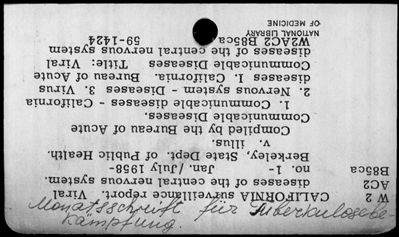 W 2 CALIFORNIA surveillance report. Viral
AC2 diseases of the central nervous system.
B85ca no. 1- Jan./July 1958-
Berkeley, State Dept. of Public Health.
v. illus.
Compiled by the Bureau of Acute
Communicable Diseases.
1. Communicable diseases - California
2. Nervous system - Diseases 3. Virus
diseases 1. California. Bureau of Acute
Communicable Diseases Title: Viral
diseases of the central nervous system
W2AC2 B85ca 59-1424
NATIONAL LIBRARY
OF MEDICINE
Monatsschrift für Tuberkulosebe-
kämpfung.